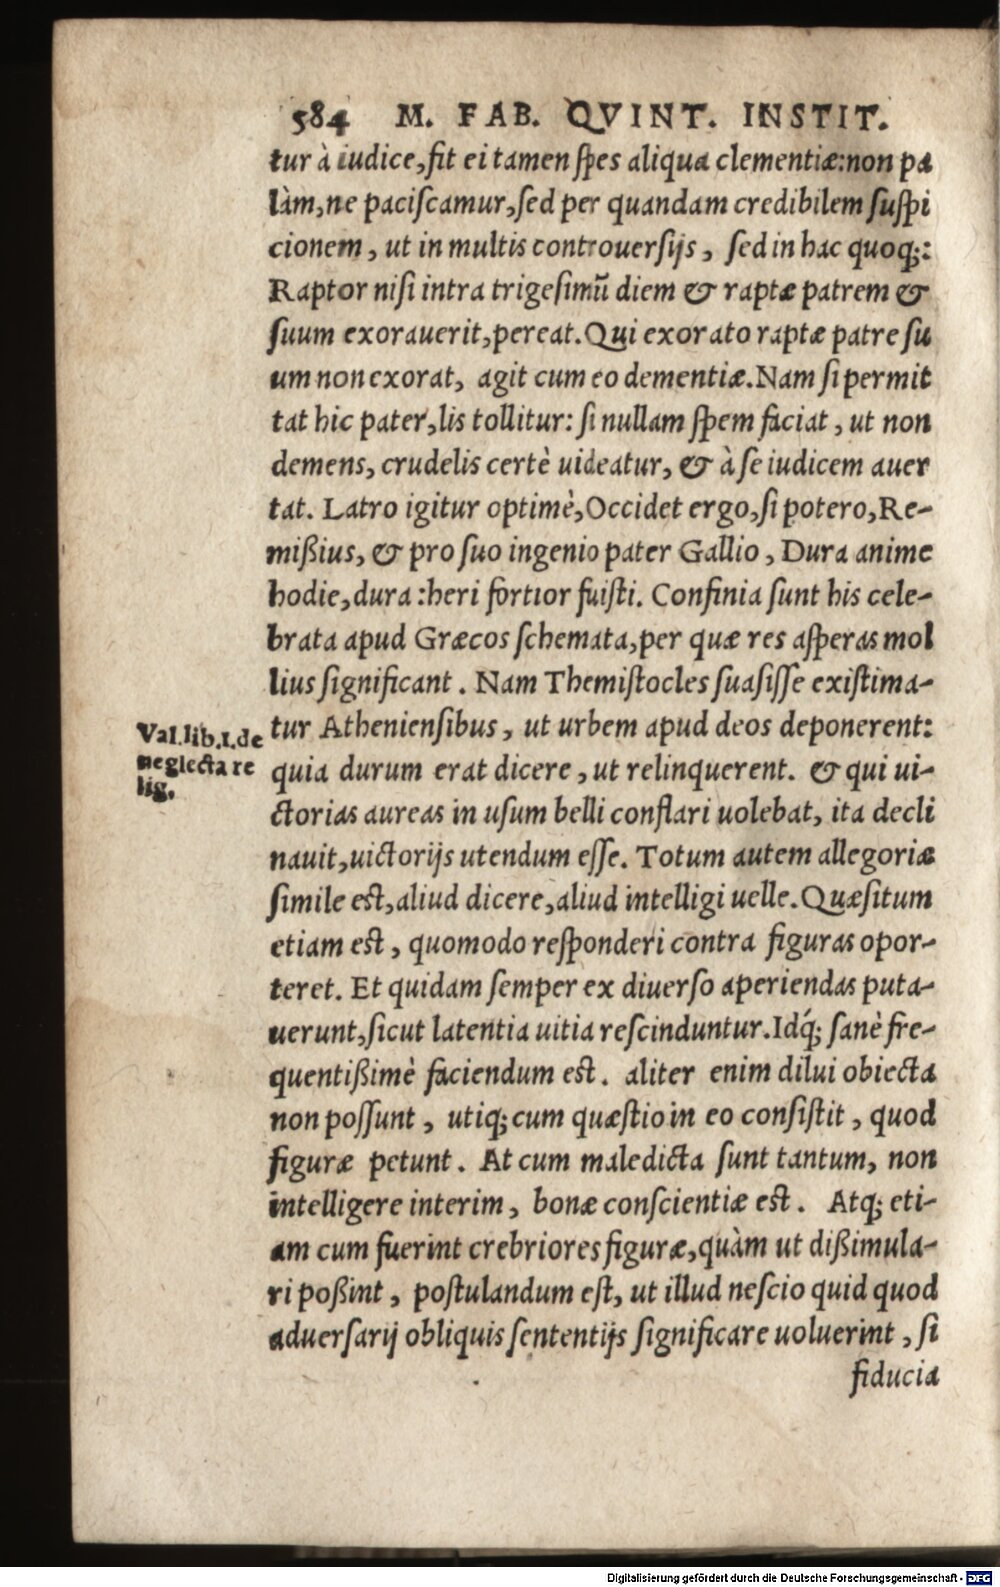 584 M. FAB. QVINT. INSTIT.
tur à iudice, sit ei tamen spes aliqua clementiæ: non pa
làm, ne paciscamur, sed per quandam credibilem suspi
cionem, ut in multis controuersijs, sed in hac quoq;:
Raptor nisi intra trigesimũ diem & raptæ patrem &
suum exorauerit, pereat. Qui exorato raptæ patre su
um non exorat, agit cum eo dementiæ. Nam si permit
tat hic pater, lis tollitur: si nullam spem faciat, ut non
demens, crudelis certè uideatur, & à se iudicem auer
tat. Latro igitur optimè, Occidet ergo, si potero, Re-
mißius, & pro suo ingenio pater Gallio, Dura anime
hodie, dura: heri fortior fuisti. Confinia sunt his cele-
brata apud Græcos schemata, per quæ res asperas mol
lius significant. Nam Themistocles suasisse existima-
tur Atheniensibus, ut urbem apud deos deponerent:
quia durum erat dicere, ut relinquerent. & qui ui-
ctorias aureas in usum belli conflari uolebat, ita decli
nauit, uictorijs utendum esse. Totum autem allegoriæ
simile est, aliud dicere, aliud intelligi uelle. Quæsitum
etiam est, quomodo responderi contra figuras opor-
teret. Et quidam semper ex diuerso aperiendas puta-
uerunt, sicut latentia uitia rescinduntur. Idq́; sanè fre-
quentißimè faciendum est. aliter enim dilui obiecta
non possunt, utiq; cum quæstio in eo consistit, quod
figuræ petunt. At cum maledicta sunt tantum, non
intelligere interim, bonæ conscientiæ est. Atq; eti-
am cum fuerint crebriores figuræ, quàm ut dißimula-
ri poßint, postulandum est, ut illud nescio quid quod
aduersarij obliquis sententijs significare uoluerint, si
fiducia
Val. lib. 1. de
neglecta re
lig.
Digitalisierung gefördert durch die Deutsche Forschungsgemeinschaft - DFG